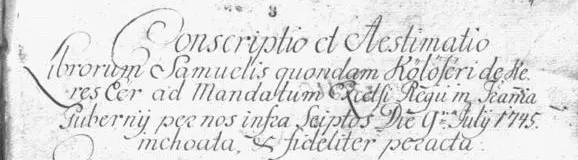 8
Conscriptio et Aestimatio
Librorum Samuelis quondam Kölöséri de Ke-
res Eér ad Mandatum Excelsi Regii in Tranńia
Gubernij per nos infra Sciptos Die 9na July 1745.
inchoata, & fideliter peracta.